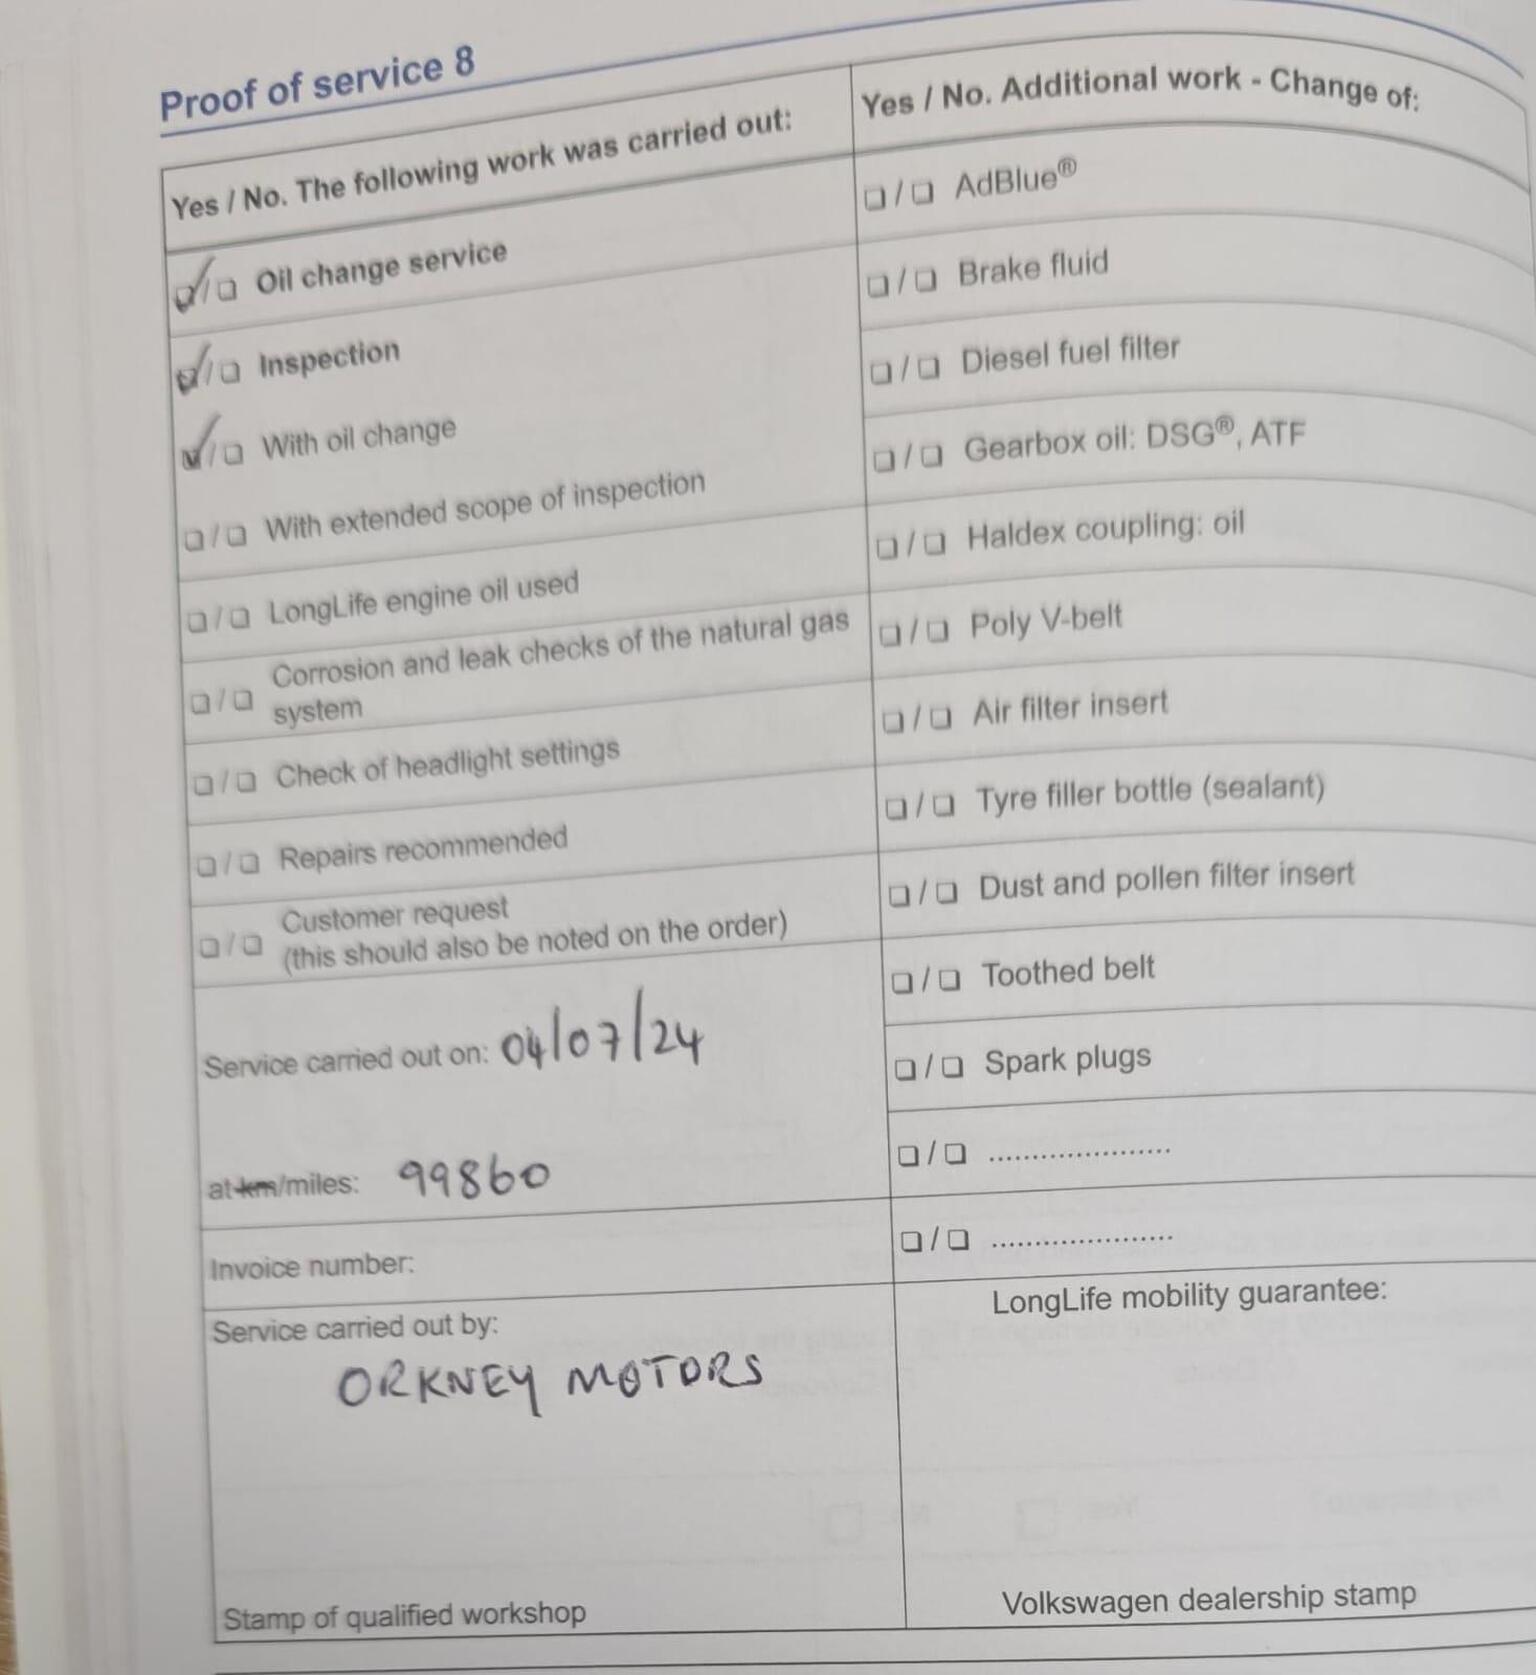 Proof of service 8
Yes / No. The following work was carried out:
☑/☐ Oil change service
☑/☐ Inspection
☑/☐ With oil change
☐/☐ With extended scope of inspection
☐/☐ LongLife engine oil used
☐/☐ Corrosion and leak checks of the natural gas
system
☐/☐ Check of headlight settings
☐/☐ Repairs recommended
☐/☐ Customer request
(this should also be noted on the order)
Service carried out on: 04/07/24
at km/miles: 99860
Invoice number:
Service carried out by:
ORKNEY MOTORS
Stamp of qualified workshop
Yes / No. Additional work - Change of:
☐/☐ AdBlue®
☐/☐ Brake fluid
☐/☐ Diesel fuel filter
☐/☐ Gearbox oil: DSG®, ATF
☐/☐ Haldex coupling: oil
☐/☐ Poly V-belt
☐/☐ Air filter insert
☐/☐ Tyre filler bottle (sealant)
☐/☐ Dust and pollen filter insert
☐/☐ Toothed belt
☐/☐ Spark plugs
☐/☐ .....................
☐/☐ .....................
LongLife mobility guarantee:
Volkswagen dealership stamp